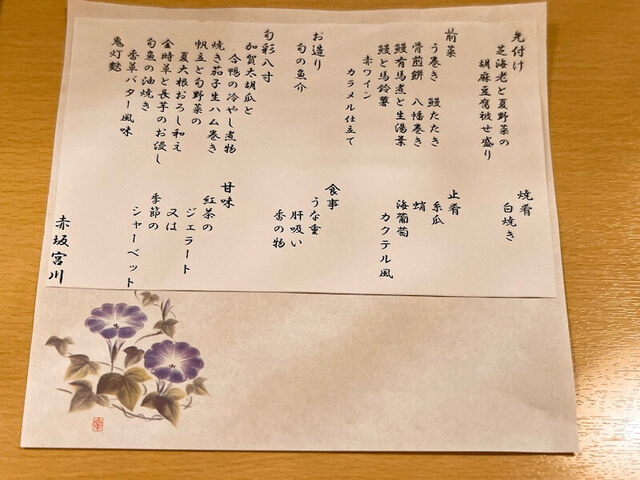 先付け
芝海老と夏野菜の
胡麻豆腐被せ盛り
前菜
う巻き 鰻たたき
骨煎餅 八幡巻き
鰻有馬煮と生湯葉
鰻と馬鈴薯
赤ワイン
カラメル仕立て
お造り
旬の魚介
旬彩八寸
加賀太胡瓜と
合鴨の冷やし煮物
焼き茄子生ハム巻き
帆立と旬野菜の
夏大根おろし和え
金時草と長芋のお浸し
旬魚の油焼き
香草バター風味
鬼灯麩
焼肴
白焼き
止肴
糸瓜
蛸
海葡萄
カクテル風
食事
うな重
肝吸い
香の物
甘味
紅茶の
ジェラート
又は
季節の
シャーベット
赤坂宮川